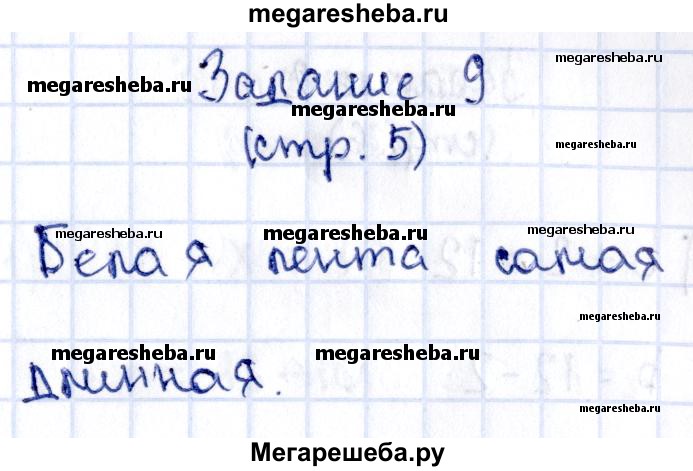 megaresheba.ru
megaresheba.ru
megaresheba.ru
Задание 9
megaresheba.ru
(стр. 5)
megaresheba.ru
megaresheba.ru
megaresheba.ru
megaresheba.ru
Белая лента самая
megaresheba.ru
megaresheba.ru
megaresheba.ru
длинная.
megaresheba.ru
Мегарешеба.ру